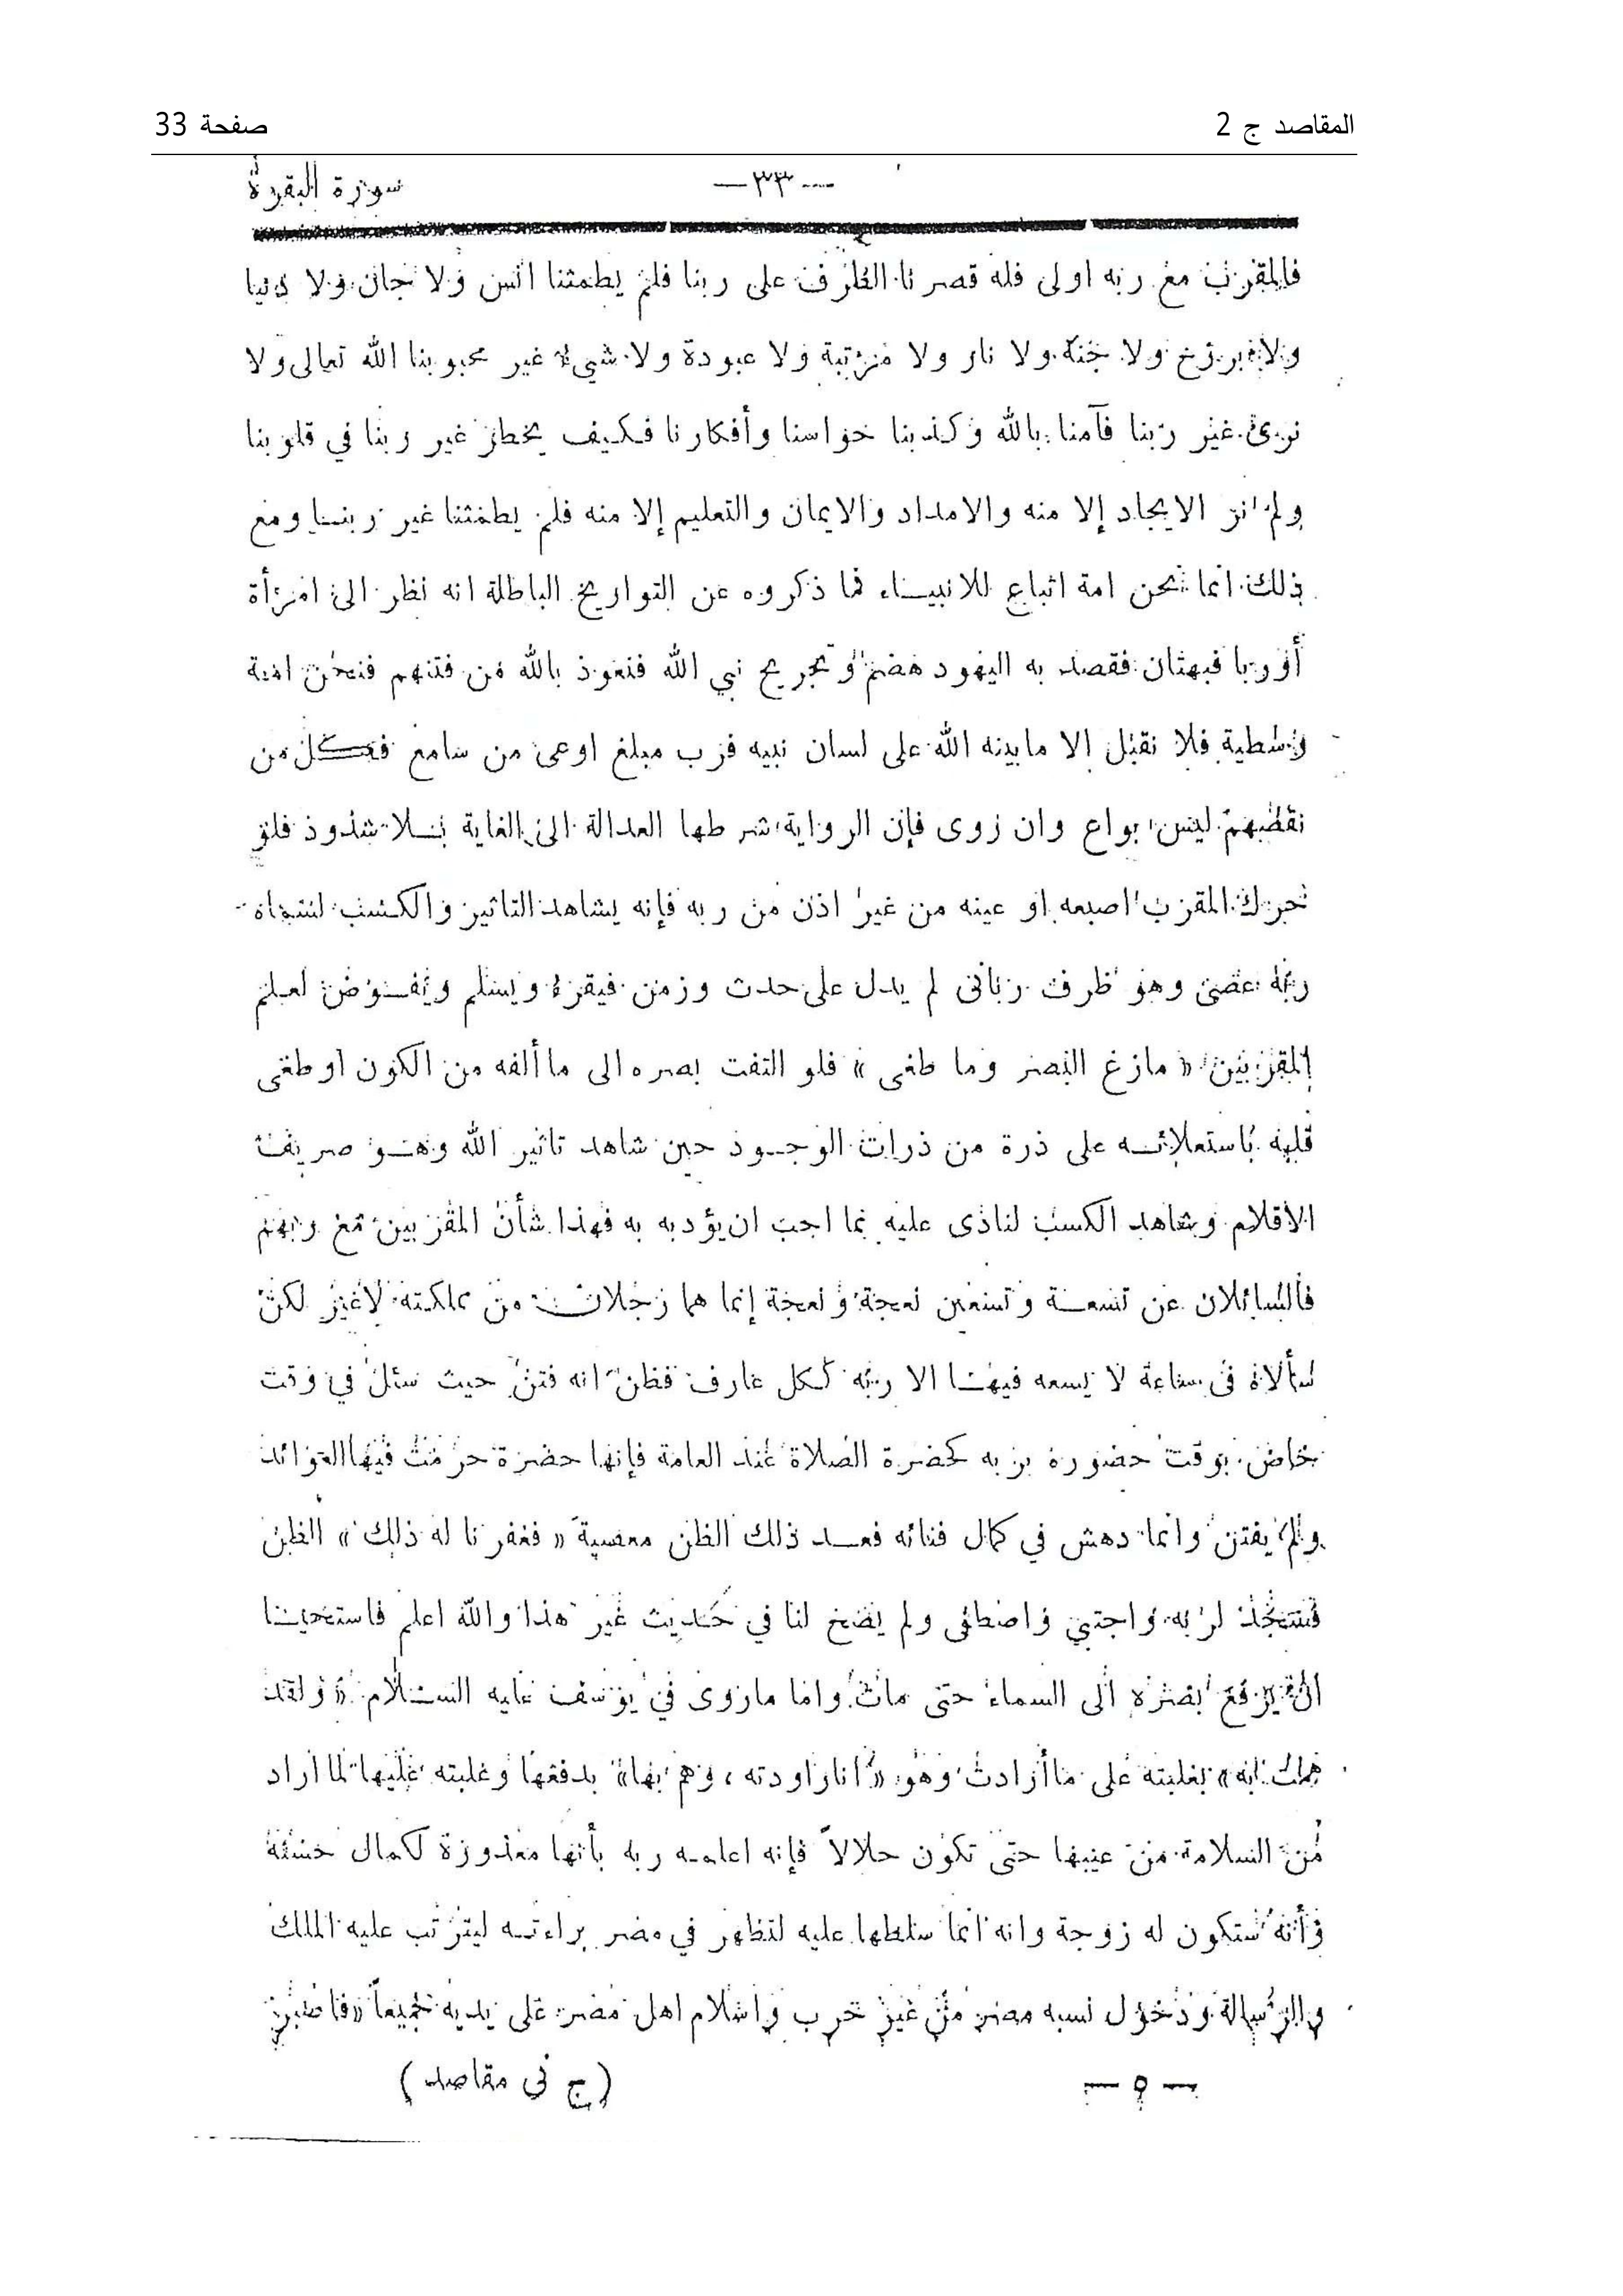 المقاصد ج 2
صفحة 33
سورة البقرة
— ٣٣ —
فالمقرب مع ربه اولى فله قصرنا الطرف على ربنا فلم يطمثنا انس ولا جان ولا دنيا
ولا برزخ ولا جنة ولا نار ولا مرتبة ولا عبودة ولا شيء غير محبوبنا الله تعالى ولا
نرى غير ربنا فآمنا بالله وكذبنا حواسنا وأفكارنا فكيف يخطر غير ربنا في قلوبنا
ولم نر الايجاد إلا منه والامداد والايمان والتعليم إلا منه فلم يطمثنا غير ربنا ومع
ذلك انما نحن امة اتباع للانبياء فما ذكروه عن التواريخ الباطلة انه نظر الى امرأة
أوريا فبهتان فقصد به اليهود هضم وتجريح نبي الله فنعوذ بالله من فتنهم فنحن امة
وسطية فلا نقبل إلا ما بينه الله على لسان نبيه فرب مبلغ اوعى من سامع فكل من
نقصهم ليس بواع وان روى فإن الرواية شرطها العدالة الى الغاية بلا شذوذ فلو
تحرك المقرب اصبعه او عينه من غير اذن من ربه فإنه يشاهد التاثير والكسب لسماه
ربه عصى وهو ظرف رباني لم يدل على حدث وزمن فيقرء ويسلم ويفوض لعلم
المقربين « مازغ البصر وما طغى » فلو التفت بصره الى ما ألفه من الكون او طغى
قلبه باستعلائه على ذرة من ذرات الوجود حين شاهد تاثير الله وهو صريف
الاقلام وشاهد الكسب لنادى عليه بما احب ان يؤدبه به فهذا شأن المقربين مع ربهم
فالسائلان عن تسعة وتسعين نعجة ونعجة إنما هما رجلان من مملكته لا غير لكن
سألاه في ساعة لا يسعه فيها الا ربه ككل عارف فظن انه فتن حيث سئل في وقت
خاص بوقت حضوره بربه كحضرة الصلاة عند العامة فإنها حضرة حرمت فيها العوائد
ولم يفتن وانما دهش في كمال فنائه فعد ذلك الظن معصية « فغفرنا له ذلك » الظن
فسجد لربه واجتبي واصطفى ولم يضح لنا في حديث غير هذا والله اعلم فاستحيا
ان يرفع بصره الى السماء حتى مات واما ماروى في يوسف عليه السلام « ولقد
همت به » بغلبته على ما أرادت وهو « انا راودته ، وهم بها » بدفعها وغلبته عليها لما اراد
من السلامة من عيبها حتى تكون حلالاً فإنه اعلمه ربه بأنها معذورة لكمال حسنه
وأنه ستكون له زوجة وانه انما سلطها عليه لتظهر في مصر براءته ليترتب عليه الملك
والرسالة ودخول نسبه مصر من غير حرب واسلام اهل مصر على يديه جميعاً « فاصبر
— ٥ —
(ج نى مقاصد)